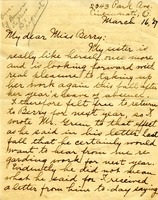 2943 Park Ave.
Cincinnati, O.
March 16,
My dear Miss Berry:
My sister is
really like herself once more
and is looking forward with
real pleasure to taking up
her work again this fall after
her year's leave of absence.
I therefore felt free to return
to Berry for next year, so I
wrote Mr. Green to that effect
as he said in his letter last
fall that he certainly would
want to hear from me re
garding work for next year.
Evidently he did not mean
what he said for I received
a letter from him to-day saying